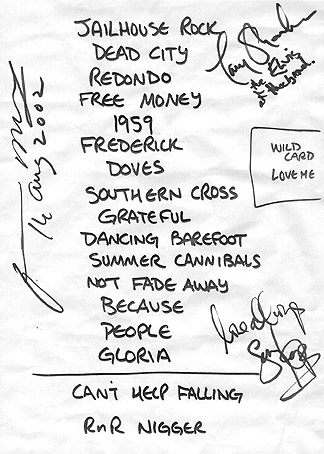 JAILHOUSE ROCK
DEAD CITY
REDONDO
FREE MONEY
1959
FREDERICK
DOVES
SOUTHERN CROSS
GRATEFUL
DANCING BAREFOOT
SUMMER CANNIBALS
NOT FADE AWAY
BECAUSE
PEOPLE
GLORIA
CAN'T HELP FALLING
RnR NIGGER
WILD
CARD
LOVE ME
14 aug 2002